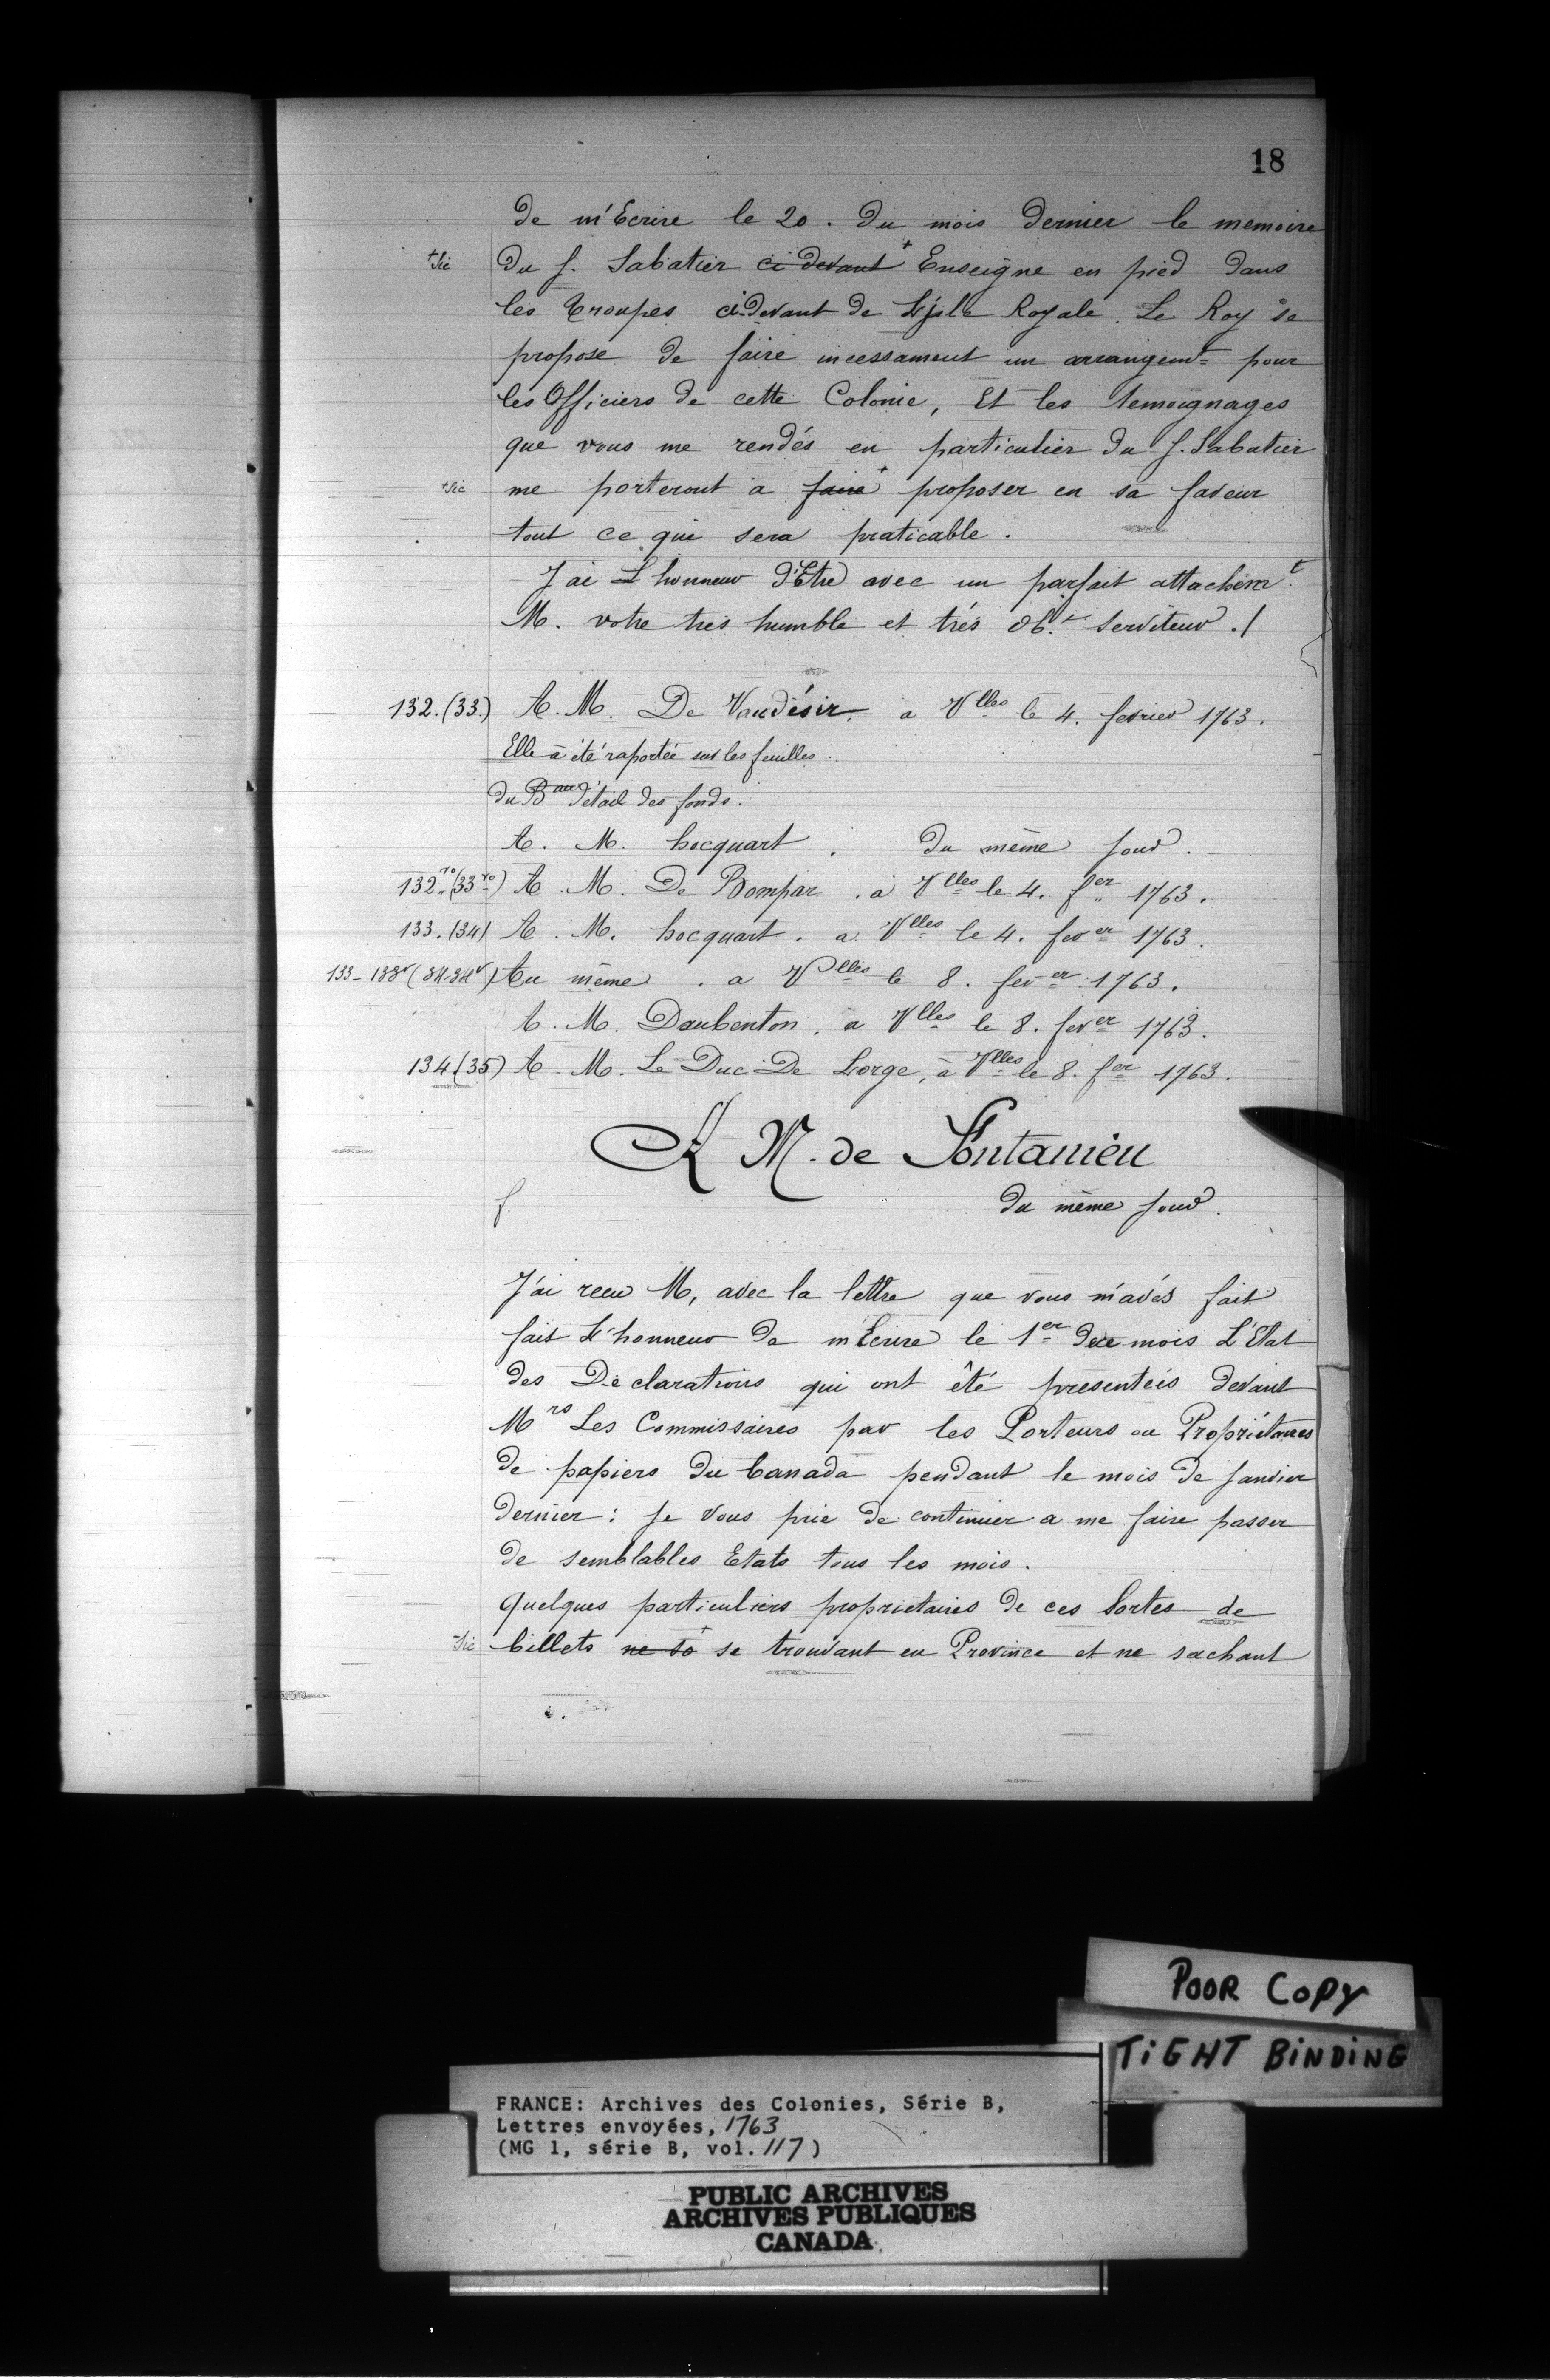 18
de m'Ecrire le 20. du mois dernier le memoire
+sic du S. Sabatier ci devant + Enseigne en pied dans
les troupes ci-devant de L'jsle Royale. Le Roy se
propose de faire incessament un arrangemt pour
les Officiers de cette Colonie, Et les temoignages
que vous me rendés en particulier du S. Sabatier
+sic me porteront a faire + proposer en sa faveur
tout ce qui sera praticable.
J'ai L'honneur d'Etre avec un parfait attachemt
M. votre tres humble et trés obt serviteur ./
132. (33.) A. M. De Vaudésir, a Vlles le 4. fevrier 1763.
Elle a été raportée sur les feuilles
du Bau détail des fonds.
A. M. hocquart. du même jour.
132vo (33vo) A. M. De Bompar. à Vlles le 4. fer 1763.
133. (34) A. M. hocquart. a Vlles le 4. fever 1763.
133-133v (34-34v) Au même. a Vlles le 8. fever 1763.
A. M. Daubenton. a Vlles le 8. fever 1763.
134 (35) A. M. Le Duc De Lorge, à Vlles le 8. fer 1763.
A M. de Fontanieu
f. du même jour.
J'ai recu M, avec la lettre que vous m'avés fait
fait L'honneur de m'Ecrire le 1er de ce mois L'Etat
des Declarations qui ont été presentées devant
Mrs Les Commissaires par les Porteurs ou Propriétaires
de papiers du Canada pendant le mois de Janvier
dernier: Je vous prie de continuer a me faire passer
de semblables Etats tous les mois.
Quelques particuliers proprietaires de ces Sortes de
sic billets ne so + se trouvant en Province et ne sachant
POOR COPY
TIGHT BINDING
FRANCE: Archives des Colonies, Série B,
Lettres envoyées, 1763
(MG 1, série B, vol. 117)
PUBLIC ARCHIVES
ARCHIVES PUBLIQUES
CANADA